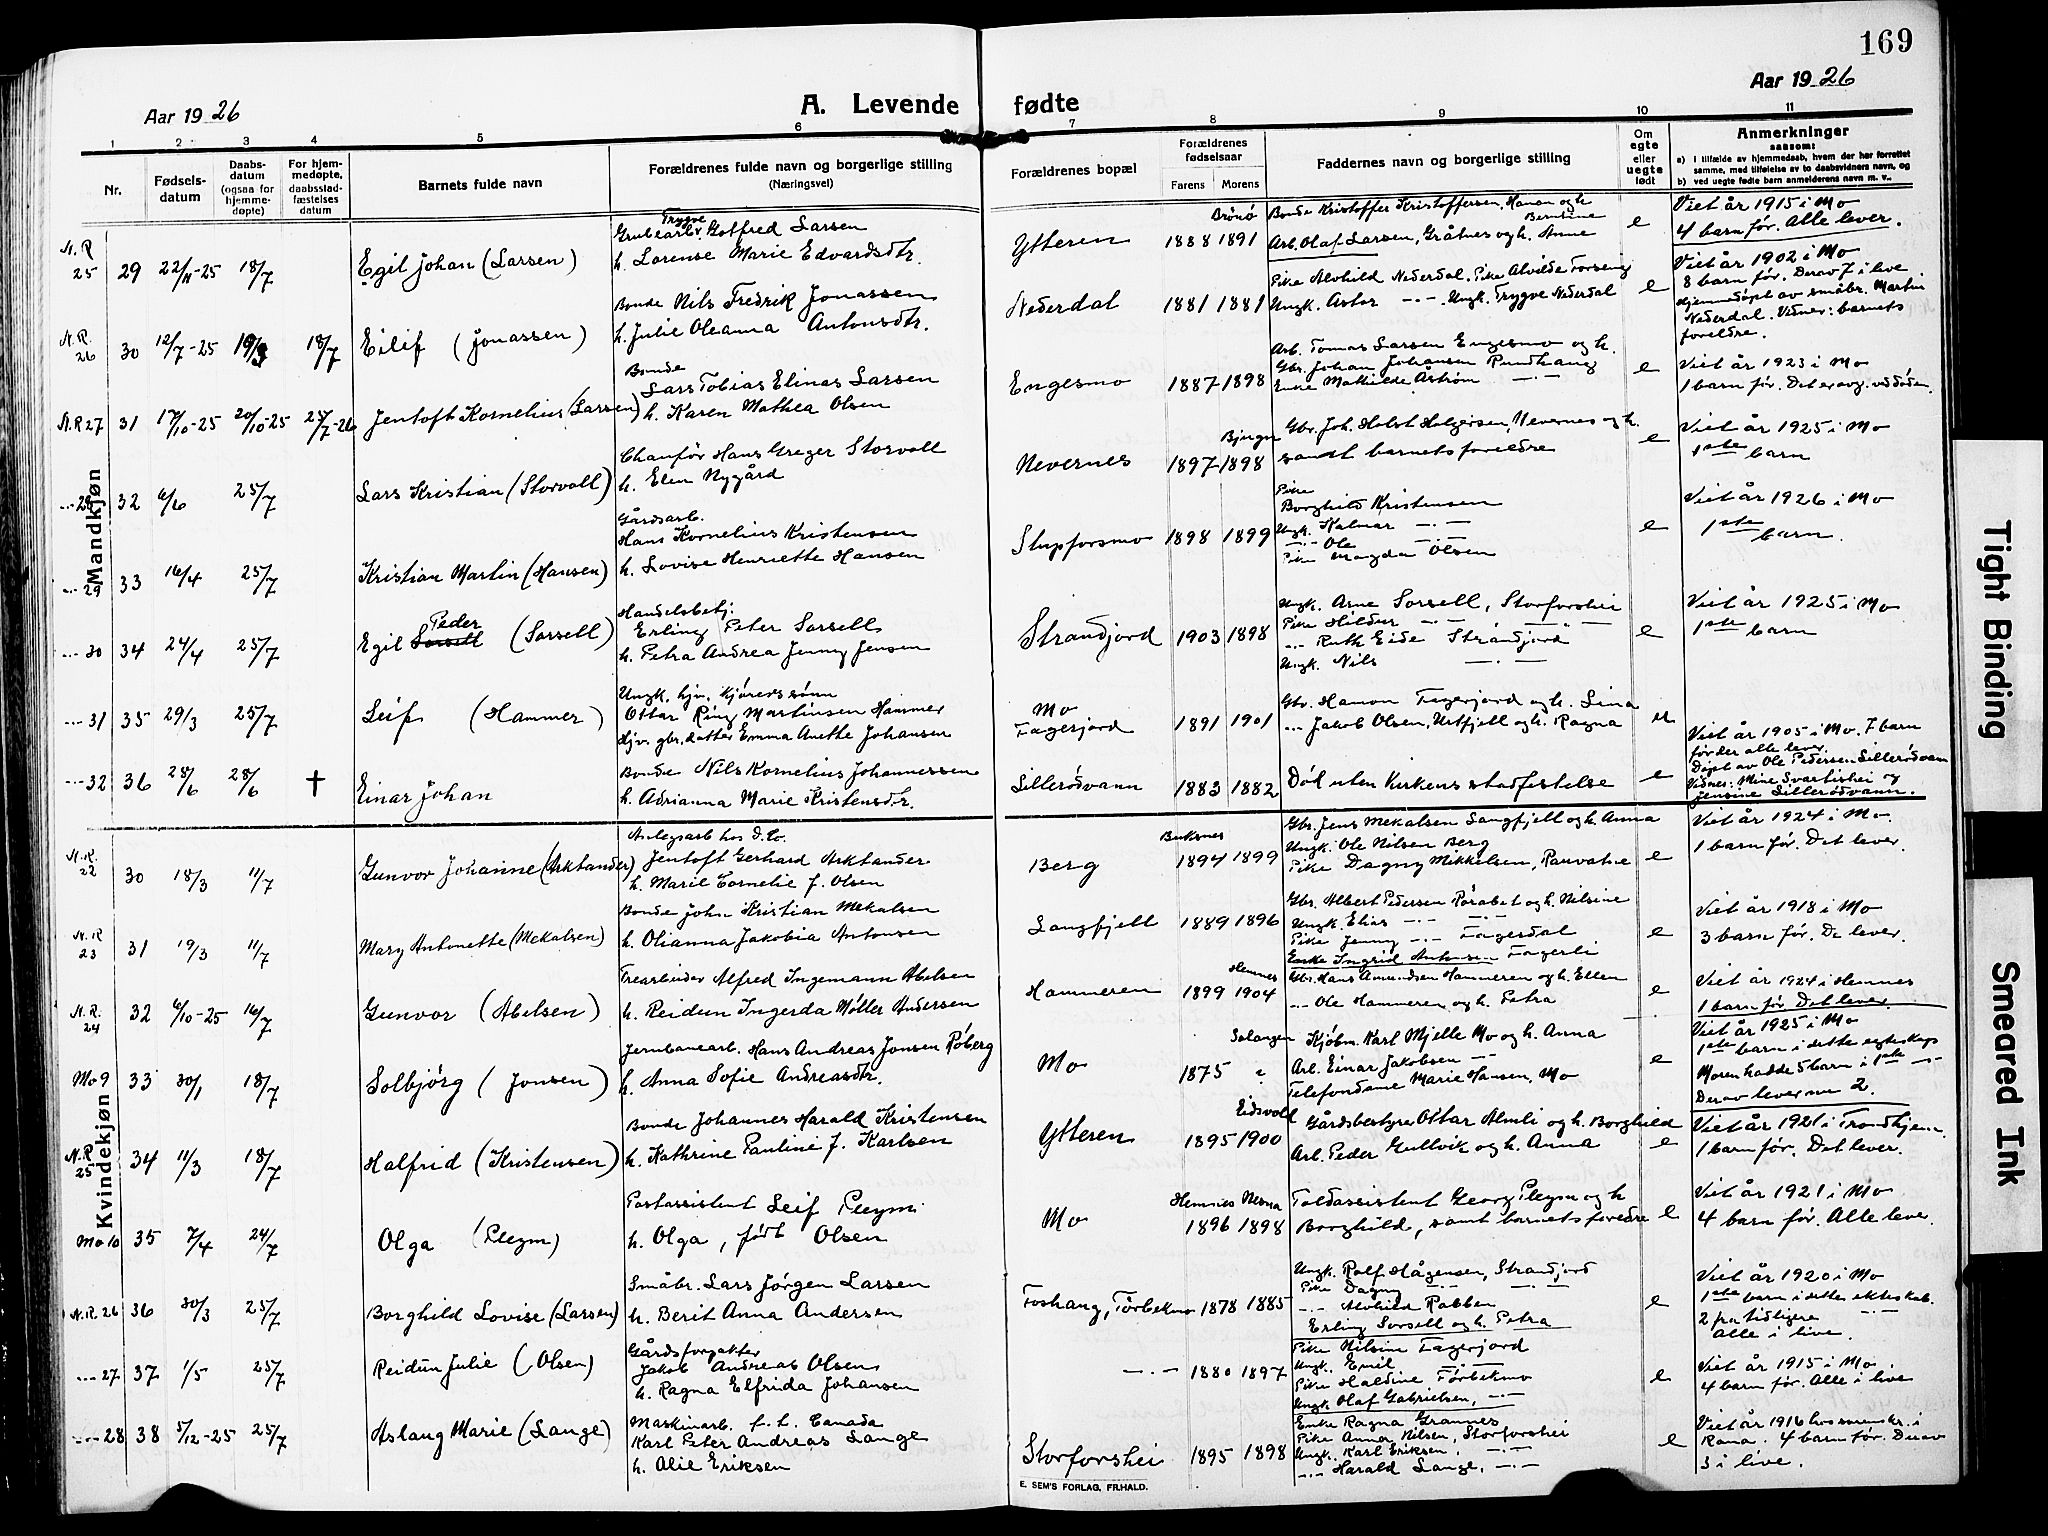 169
Aar 1926
A. Levende fødte
Aar 1926
1 2 3 4 5 6 7 8 9 10 11
Nr.
Fødsels-datum
Daabs-datum (ogsaa for hjemme-døpte)
For hjem-medøpte, daabsstad-fæstelses datum
Barnets fulde navn
Forældrenes fulde navn og borgerlige stilling (Næringsvei)
Forældrenes bopæl
Forældrenes fødselsaar
Farens Morens
Faddernes navn og borgerlige stilling
Om egte eller uegte født
Anmerkninger saasom:
a) i tilfælde av hjemmedaab, hvem der har forrettet samme, med tilføielse av to daabsvidners navn, og
b) ved uegte fødte barn anmelderens navn m. v..
Mandkjøn
N.R. 25 29 22/11-25 18/7 Egil Johan (Larsen)
Grubearb. Trygve Gotfred Larsen
h. Lorense Marie Edvardsdtr.
Ytteren 1888 Brönö 1891
Bonde Kristoffer Kristoffersen, Hanan og h. Berntine
Arb. Olaf Larsen, Gråtnes og h. Anne
e
Viet år 1915 i Mo
4 barn før. Alle lever.
N.R. 26 30 12/7-25 19/3 18/7 Eilif (Jonassen)
Bonde Nils Fredrik Jonassen
h. Julie Oleanna Antonsdtr.
Nederdal 1881 1881
Pike Alvhild Nederdal, Pike Alvilde Forseng
Ungk. Astor -·- Ungk. Trygve Nederdal
e
Viet år 1902 i Mo
8 barn før. Derav 7 i live
Hjemmedøpt av småbr. Martin
Nederdal. Vidner: barnets
foreldre.
N.R 27 31 17/10-25 20/10-25 25/7-26 Jentoft Kornelius (Larsen)
Bonde
Lars Tobias Elinas Larsen
h. Karen Mathea Olsen
Engesmo 1887 1898
Arb. Tomas Larsen Engesmo og h.
Gbr. Johan Johansen Rundhaug
Enke Mathilde Åström -·-
e
Viet år 1923 i Mo
1 barn før. Det er avg. ved døden.
-·- 28 32 6/6 25/7 Lars Kristian (Storvoll)
Chauför Hans Greger Storvoll
h. Elen Nygård
Nevernes 1897 Bjugn 1898
Gbr. Joh. Holst Holgersen, Nevernes og h.
samt barnets foreldre
e
Viet år 1925 i Mo
1ste barn
-·- 29 33 16/4 25/7 Kristian Martin (Hansen)
Gårdsarb.
Hans Kornelius Kristensen
h. Lovise Henriette Hansen
Stupforsmo 1898 1899
Pike
Borghild Kristensen
Ungk. Halvar -·-
-·- Ole
Pike Magda Olsen
e
Viet år 1926 i Mo
1ste barn.
-·- 30 34 24/4 25/7 Egil Peder (Sorsell)
Handelsbetj.
Erling Peter Sorsell
h. Petra Andrea Jenny Jensen
Strandjord 1903 1898
Ungk. Arne Sorsell, Storforshei
Pike Hildur -·-
-·- Ruth Eide Strandjord
Ungk. Nils -·-
e
Viet år 1925 i Mo
1ste barn
-·- 31 35 29/3 25/7 Leif (Hammer)
Ungk. hjv. kjørers sönn
Ottar Ring Martinsen Hammer
Hjv. gbr. datter Emma Anethe Johansen
Mo
Fagerjord 1891 1901
Gbr. Hanon Fagerjord og h. Lina
-·- Jakob Olsen, Urtfjell og h. Ragna
U
-·- 32 36 28/6 28/6 † Einar Johan
Bonde Nils Kornelius Johannessen
h. Adrianna Marie Kristensdtr.
Sillerödvann 1883 1882
Död uten kirkens stadfestelse
e
Viet år 1905 i Mo. 7 barn
før der alle lever.
Döpt av Ole Pedersen Sillerödvann
Vidner: Mine Svartishei og
Jensine Sillerödvann.
Kvindekjøn
N.R. 22 30 18/3 11/7 Gunvor Johanne (Arktander)
Anlegsarb. hos D.to.
Jentoft Gerhard Arktander
h. Marie Cornelie f. Olsen
Berg Buksnes 1894 1899
Gbr. Jens Mekalsen Langfjell og h. Anna
Ungk. Ole Nilsen Berg
Pike Dagny Mikkelsen, Rauvatne
e
Viet år 1924 i Mo.
1 barn før. Det lever.
N.R 23 31 19/3 11/7 Mary Antonette (Mekalsen)
Bonde John Kristian Mekalsen
h. Olianna Jakobia Antonsen
Langfjell 1889 1896
Gbr. Albert Pedersen Röråbet og h. Nilsine
Ungk. Elias -·-
Pike Jenny -·- Fagerdal
Enke Ingrid Antonsen Fagerli
e
Viet år 1918 i Mo
3 barn før. De lever.
N.R. 24 32 6/10-25 16/7 Gunvor (Abelsen)
Trearbeider Alfred Ingemann Abelsen
h. Reidun Ingerda Møller Andersen
Hammeren 1899 Hemnes 1904
Gbr. Hans Amundsen Hammeren og h. Ellen
-·- Ole Hammeren og h. Petra
e
Viet år 1924 i Hemnes
1 barn før. Det lever.
Mo 9 33 30/1 18/7 Solbjörg (Jonsen)
Jernbanearb. Hans Andreas Jonsen Röberg
h. Anna Sofie Andreasdtr.
Mo 1875 Salangen
Kjöbm. Karl Mjelle Mo og h. Anna
Arb. Einar Jakobsen -·-
Telefondame Marie Hansen, Mo
e
Viet år 1925 i Mo
1ste barn i dette egteskap
Moren hadde 5 barn i 1ste -·-
Derav lever nu 2.
N.R. 25 34 11/3 18/7 Halfrid (Kristensen)
Bonde Johannes Harald Kristensen
h. Kathrine Pauline f. Karlsen
Ytteren 1895 Eidsvoll 1900
Gårdsbestyrer Ottar Almli og h. Borghild
Arb. Peder Gullvik og h. Anna
e
Viet år 1921 i Trondhjem.
1 barn før. Det lever.
Mo 10 35 7/4 24/7 Olga (Pleym)
Postassistent Leif Pleym
h. Olga, født Olsen
Mo Hemnes 1896 Nesna 1898
Toldassistent Georg Pleym og h
Borghild, samt barnets foreldre
e
Viet år 1921 i Mo
4 barn før. Alle lever.
N.R. 26 36 30/3 25/7 Borghild Lovise (Larsen)
Småbr. Lars Jörgen Larsen
h. Berit Anna Andersen
Foshaug, Tørbekmo 1878 1885
Ungk. Rolf Hågensen, Strandjord
Pike Dagny -·-
-·- Alvhild Rabben
Erling Sorsell og h. Petra
e
Viet år 1920 i Mo
1ste barn i dette ekteskab.
2 fra tidligere -·-
Alle i live.
-·- 27 37 1/5 25/7 Reidun Julie (Olsen)
Gårdsforpakter
Jakob Andreas Olsen
h. Ragna Elfrida Johansen
-·- 1880 1897
Pike Nilsine Fagerjord
Ungk. Emil -·-
Pike Haldine Tørbekmo
Ungk. Olaf Gabrielsen, -·-
e
Viet år 1915 i Mo.
4 barn før. Alle i live
-·- 28 38 5/12-25 25/7 Aslaug Marie (Lange)
Maskinarb. f. t. Canada
Karl Peter Andreas Lange
h. Alie Eriksen
Storforshei 1895 1898
Enke Ragna Grannes
Pike Anna Nilsen, Storforshei
Ungk. Karl Eriksen, -·-
-·- Harald Lange, -·-
e
Viet år 1916 hos sorenskr. i
Rana. 4 barn før. Derav
3 i live.
E. SEM'S FORLAG, FR.HALD.
Tight Binding
Smeared Ink